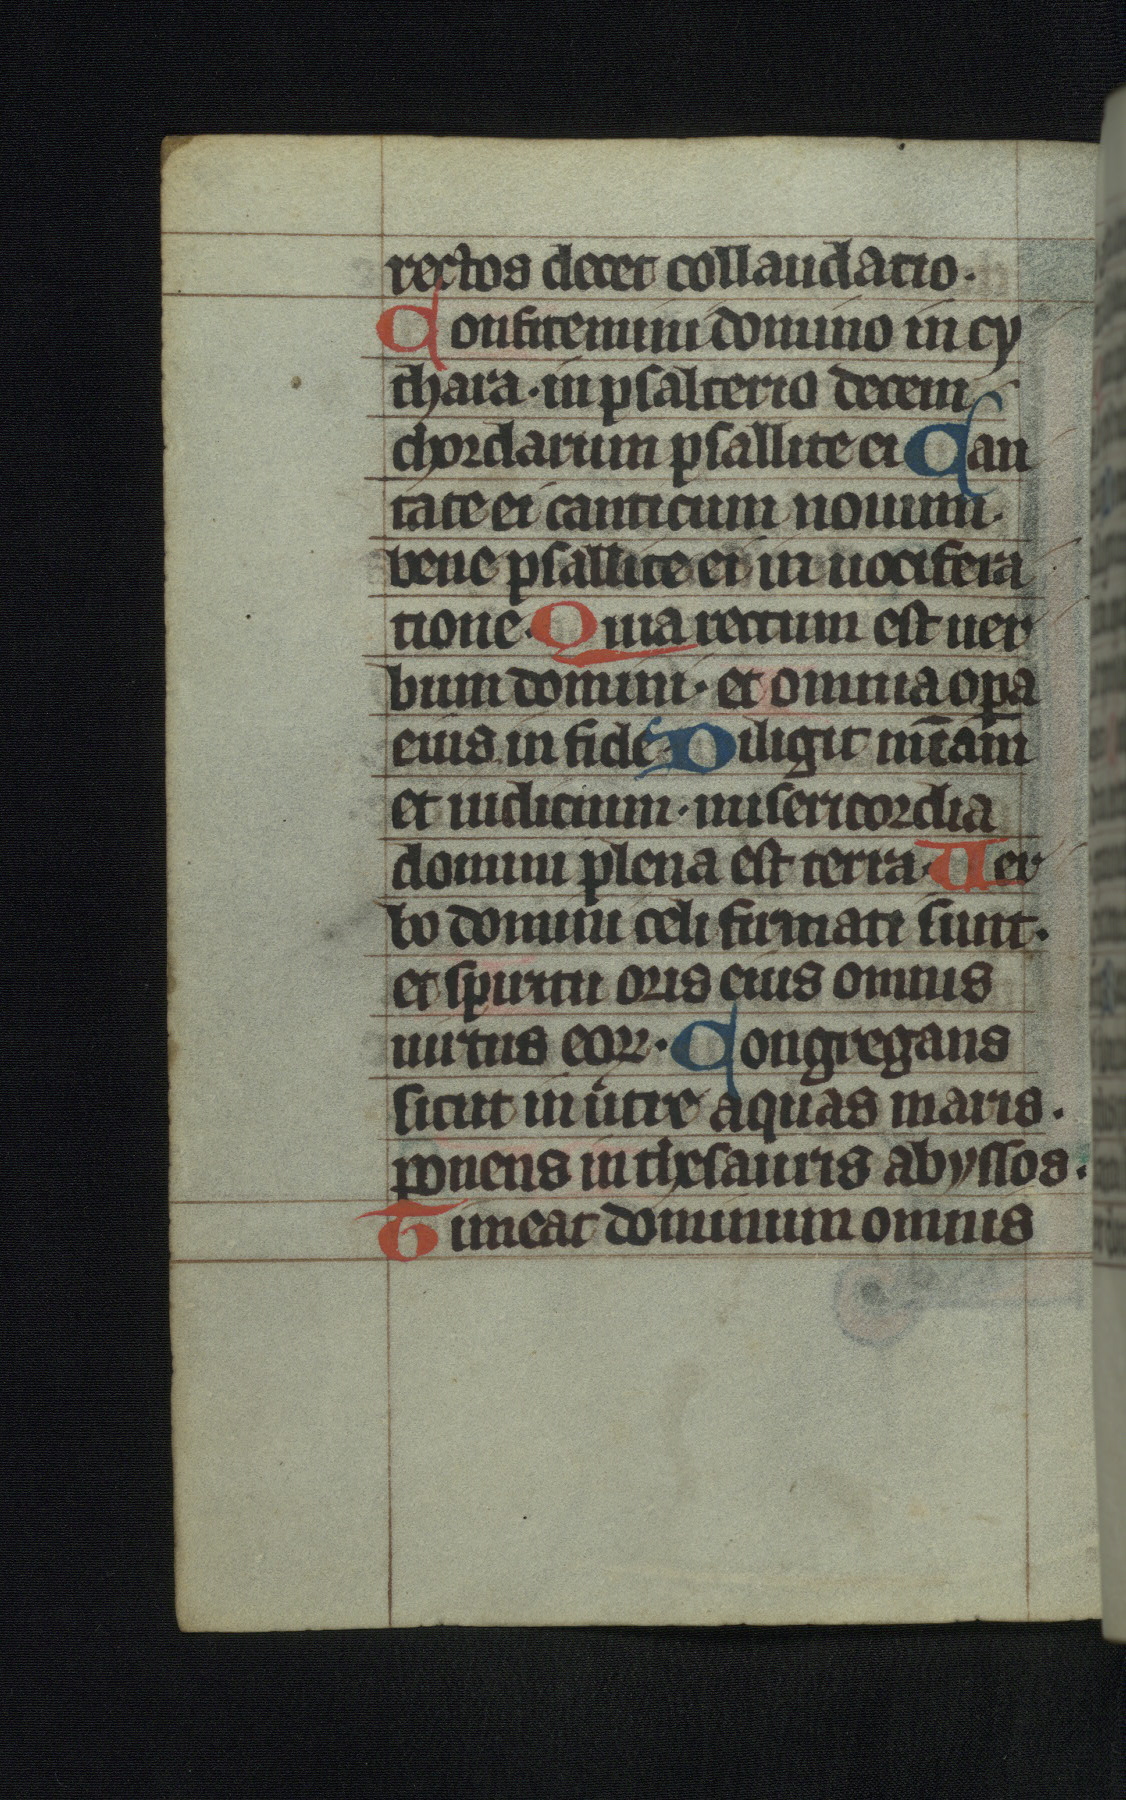 rectos decet collaudatio.
Confitemini domino in cy
thara · in psalterio decem
chordarum psallite ei Can
tate ei canticum nouum.
bene psallite ei in uocifera
tione. Quia rectum est uer
bum domini · et omnia oꝑa
eius in fide. Diligit mi̅am
et iudicium · misericordia
domini plena est terra. Uer
bo domini celi firmati sunt.
et spiritu oris eius omnis
uirtus eoꝝ. Congregans
sicut in ut͛e aquas maris.
ponens in thesauris abyssos.
Timeat dominum omnis